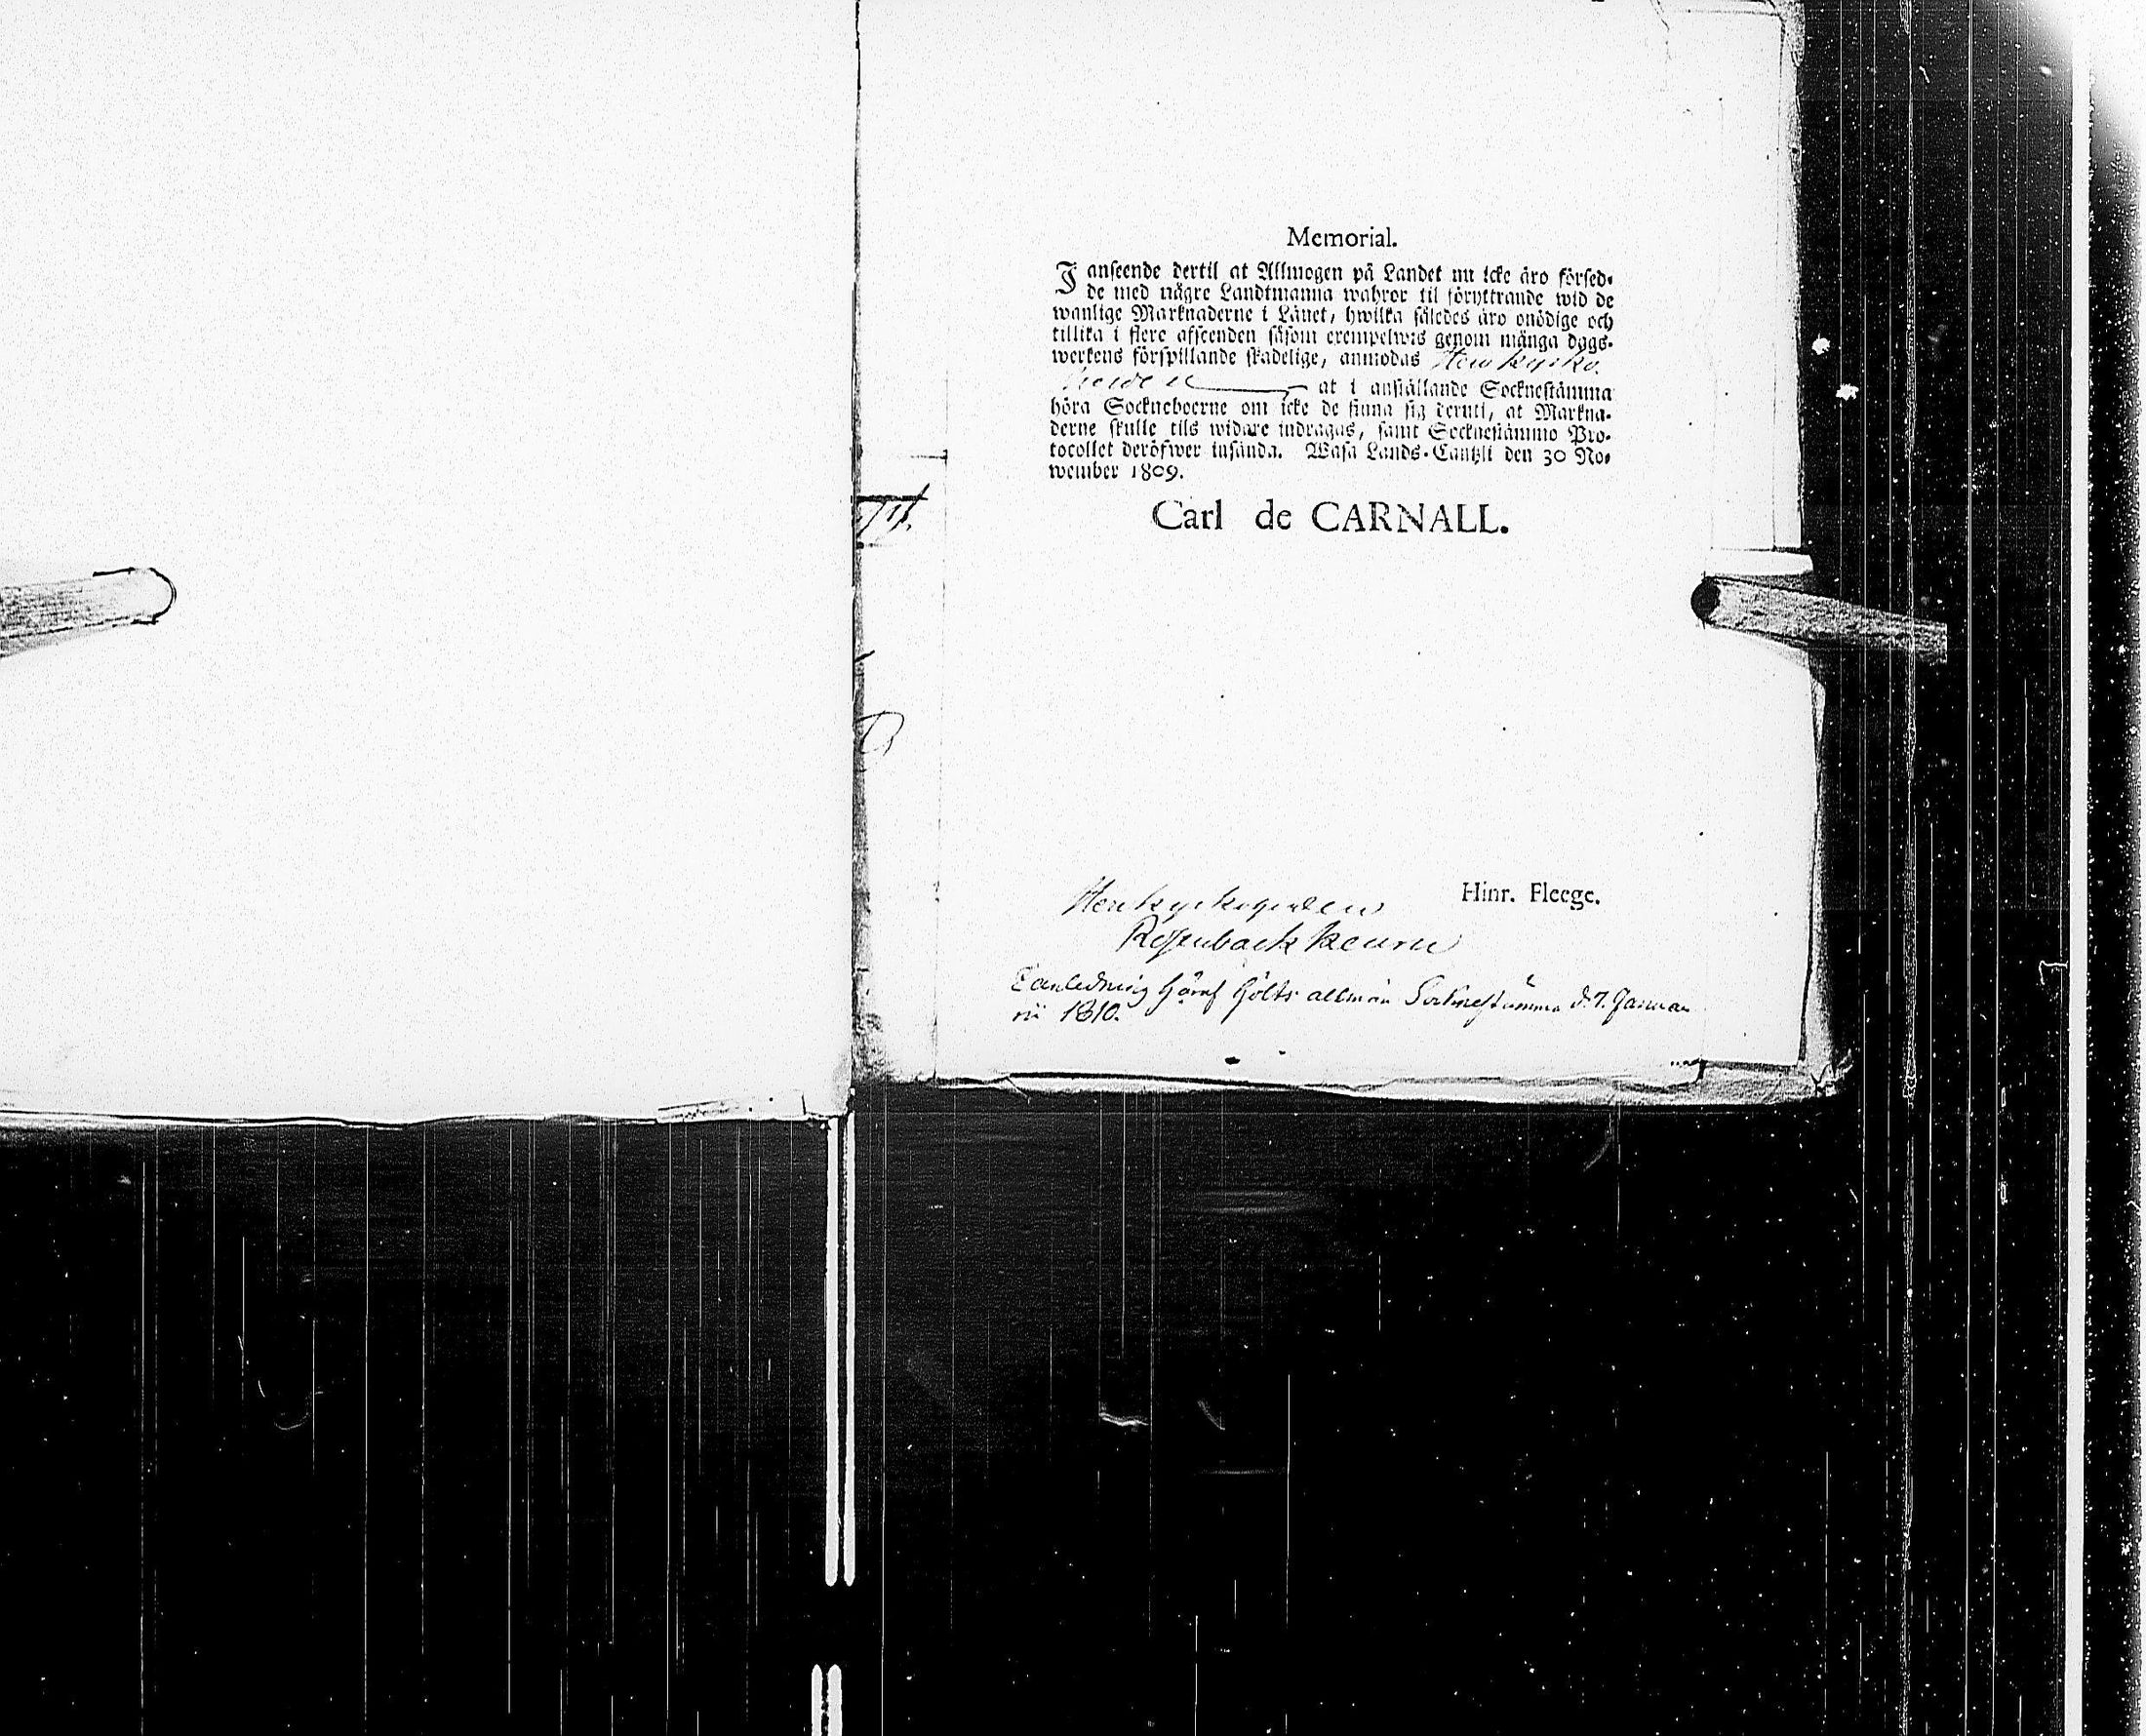 Memorial.
I anseende dertil at Allmogen på Landet nu icke äro försed-
de med någre Landtmanna wahror til föryttrande wid de
wanlige Marknaderne i Länet, hwilka således äro onödige och
tillika i flere afseenden såsom exempelwis genom många dags-
werkens förspillande skadelige, anmodas Herr Kyrko-
herden at i anställande Socknestämma
höra Sockneboerne om icke de finna sig deruti, at Markna-
derne skulle tils widare indragas, samt Socknestämmo Pro-
tocollet deröfwer insända. Wasa Lands-Cantzli den 30 No-
wember 1809.
Carl de CARNALL.
Hinr. Fleege.
Herr Kyrkoherden
Rosenback
I anledning häraf hölts allmän Socknestämma d. 7. Janua-
rii 1810.